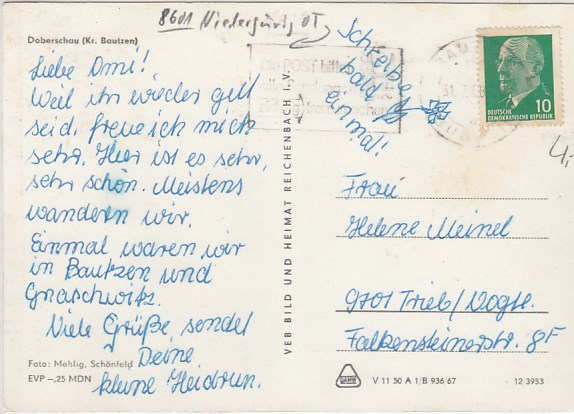 8601 Niedergurig OT
Doberschau (Kr. Bautzen)
Liebe Omi!
Weil ihr wieder gut
seid, freue ich mich
sehr. Hier ist es sehr,
sehr schön. Meistens
wandern wir.
Einmal waren wir
in Bautzen und
Gnaschwitz.
Viele Grüße, sendet
Deine
kleine Heidrun.
Foto: Mehlig, Schönfeld
EVP –,25 MDN
VEB BILD UND HEIMAT REICHENBACH I. V.
Schreibe
bald
einmal!
10
DEUTSCHE
DEMOKRATISCHE REPUBLIK
4,-
Frau
Helene Meinel
9701 Trieb/Vogtl.
Falkensteinerstr. 8F
V 11 50 A 1/B 936 67
12.3953